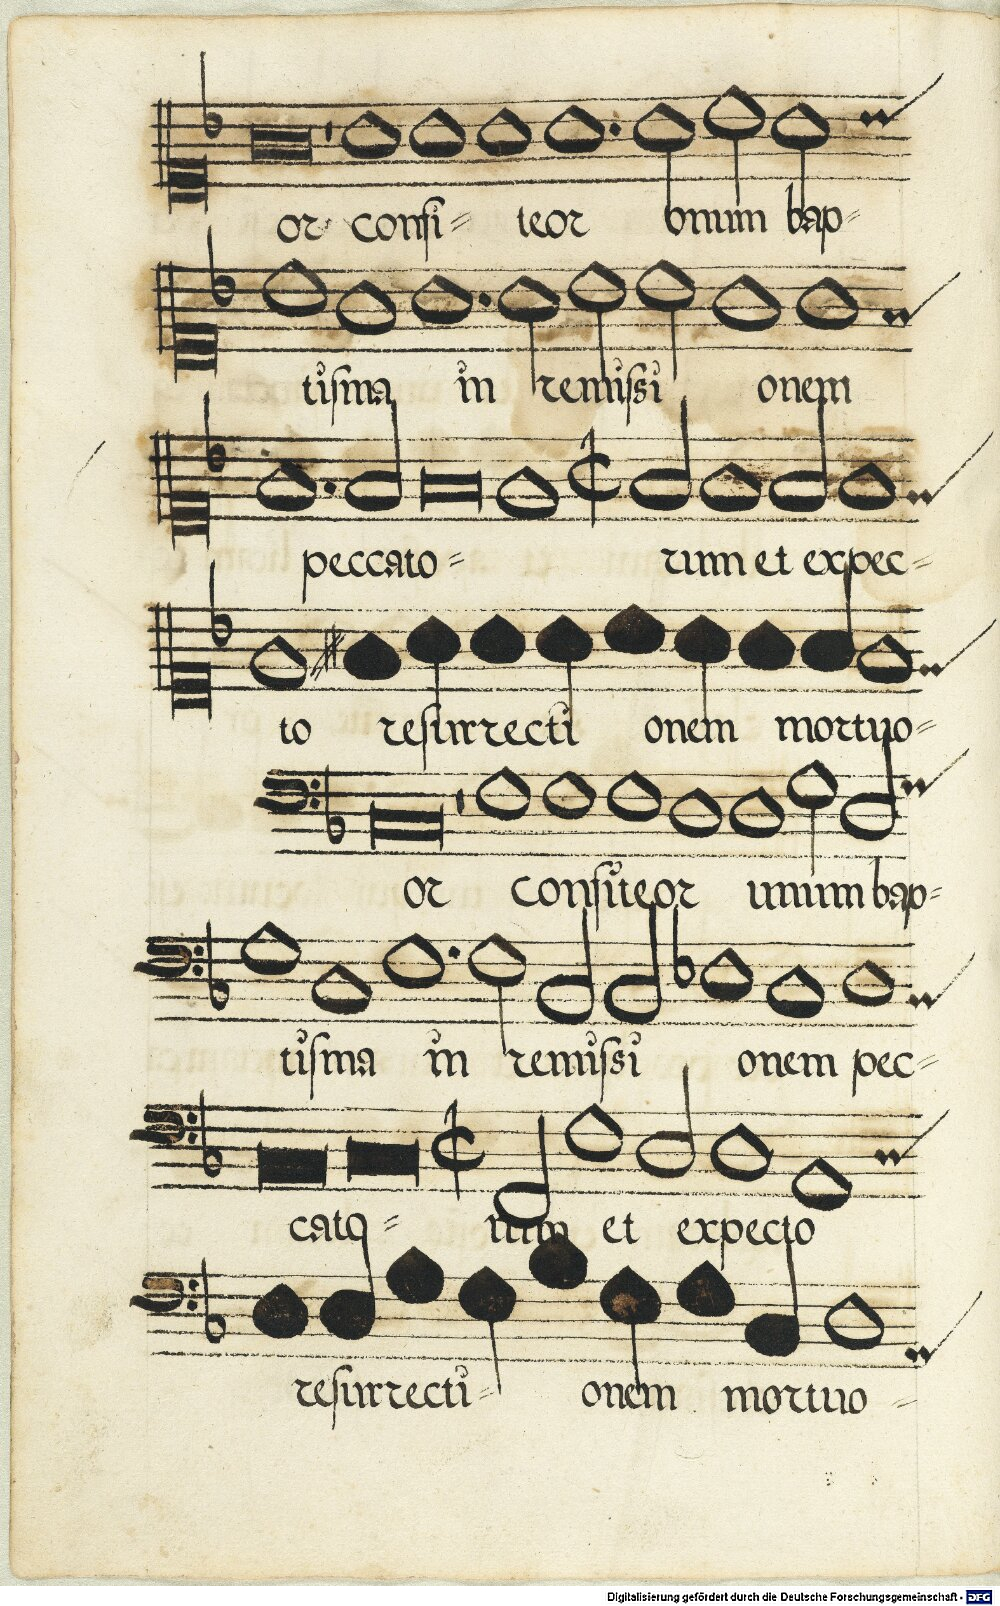 or confi= teor vnum bap=
tisma in remissi onem
peccato= rum et expec=
to resurrecti onem mortuo=
or confiteor unum bap=
tisma in remissi onem pec=
cato= rum et expecto
resurrecti= onem mortuo=
Digitalisierung gefördert durch die Deutsche Forschungsgemeinschaft - DFG